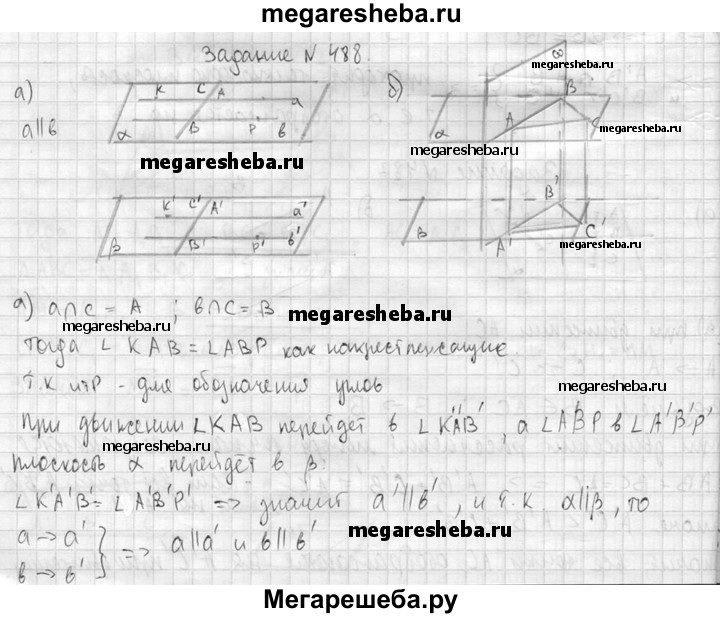 megaresheba.ru
Задание N 488.
а)
K C A a
a∥в
α B P в
megaresheba.ru
K' C' A' a'
β B' P' в'
б)
megaresheba.ru
B
A C
α
megaresheba.ru
B'
β A' C'
megaresheba.ru
а) a∩c = A ; в∩C = B
megaresheba.ru
megaresheba.ru
тогда ∠ KAB = ∠ABP как накрест лежащие.
т.К и т P - для обозначения углов
megaresheba.ru
При движении ∠KAB перейдет в ∠ K'A'B' , а ∠A'B'P в ∠A'B'P'
megaresheba.ru
плоскость α перейдет в β:
∠K'A'B' = ∠A'B'P' => значит a'∥в' , и т.к. α∥β, то
a → a'
в → в' } => a∥a' и в∥в'
megaresheba.ru
Мегарешеба.ру